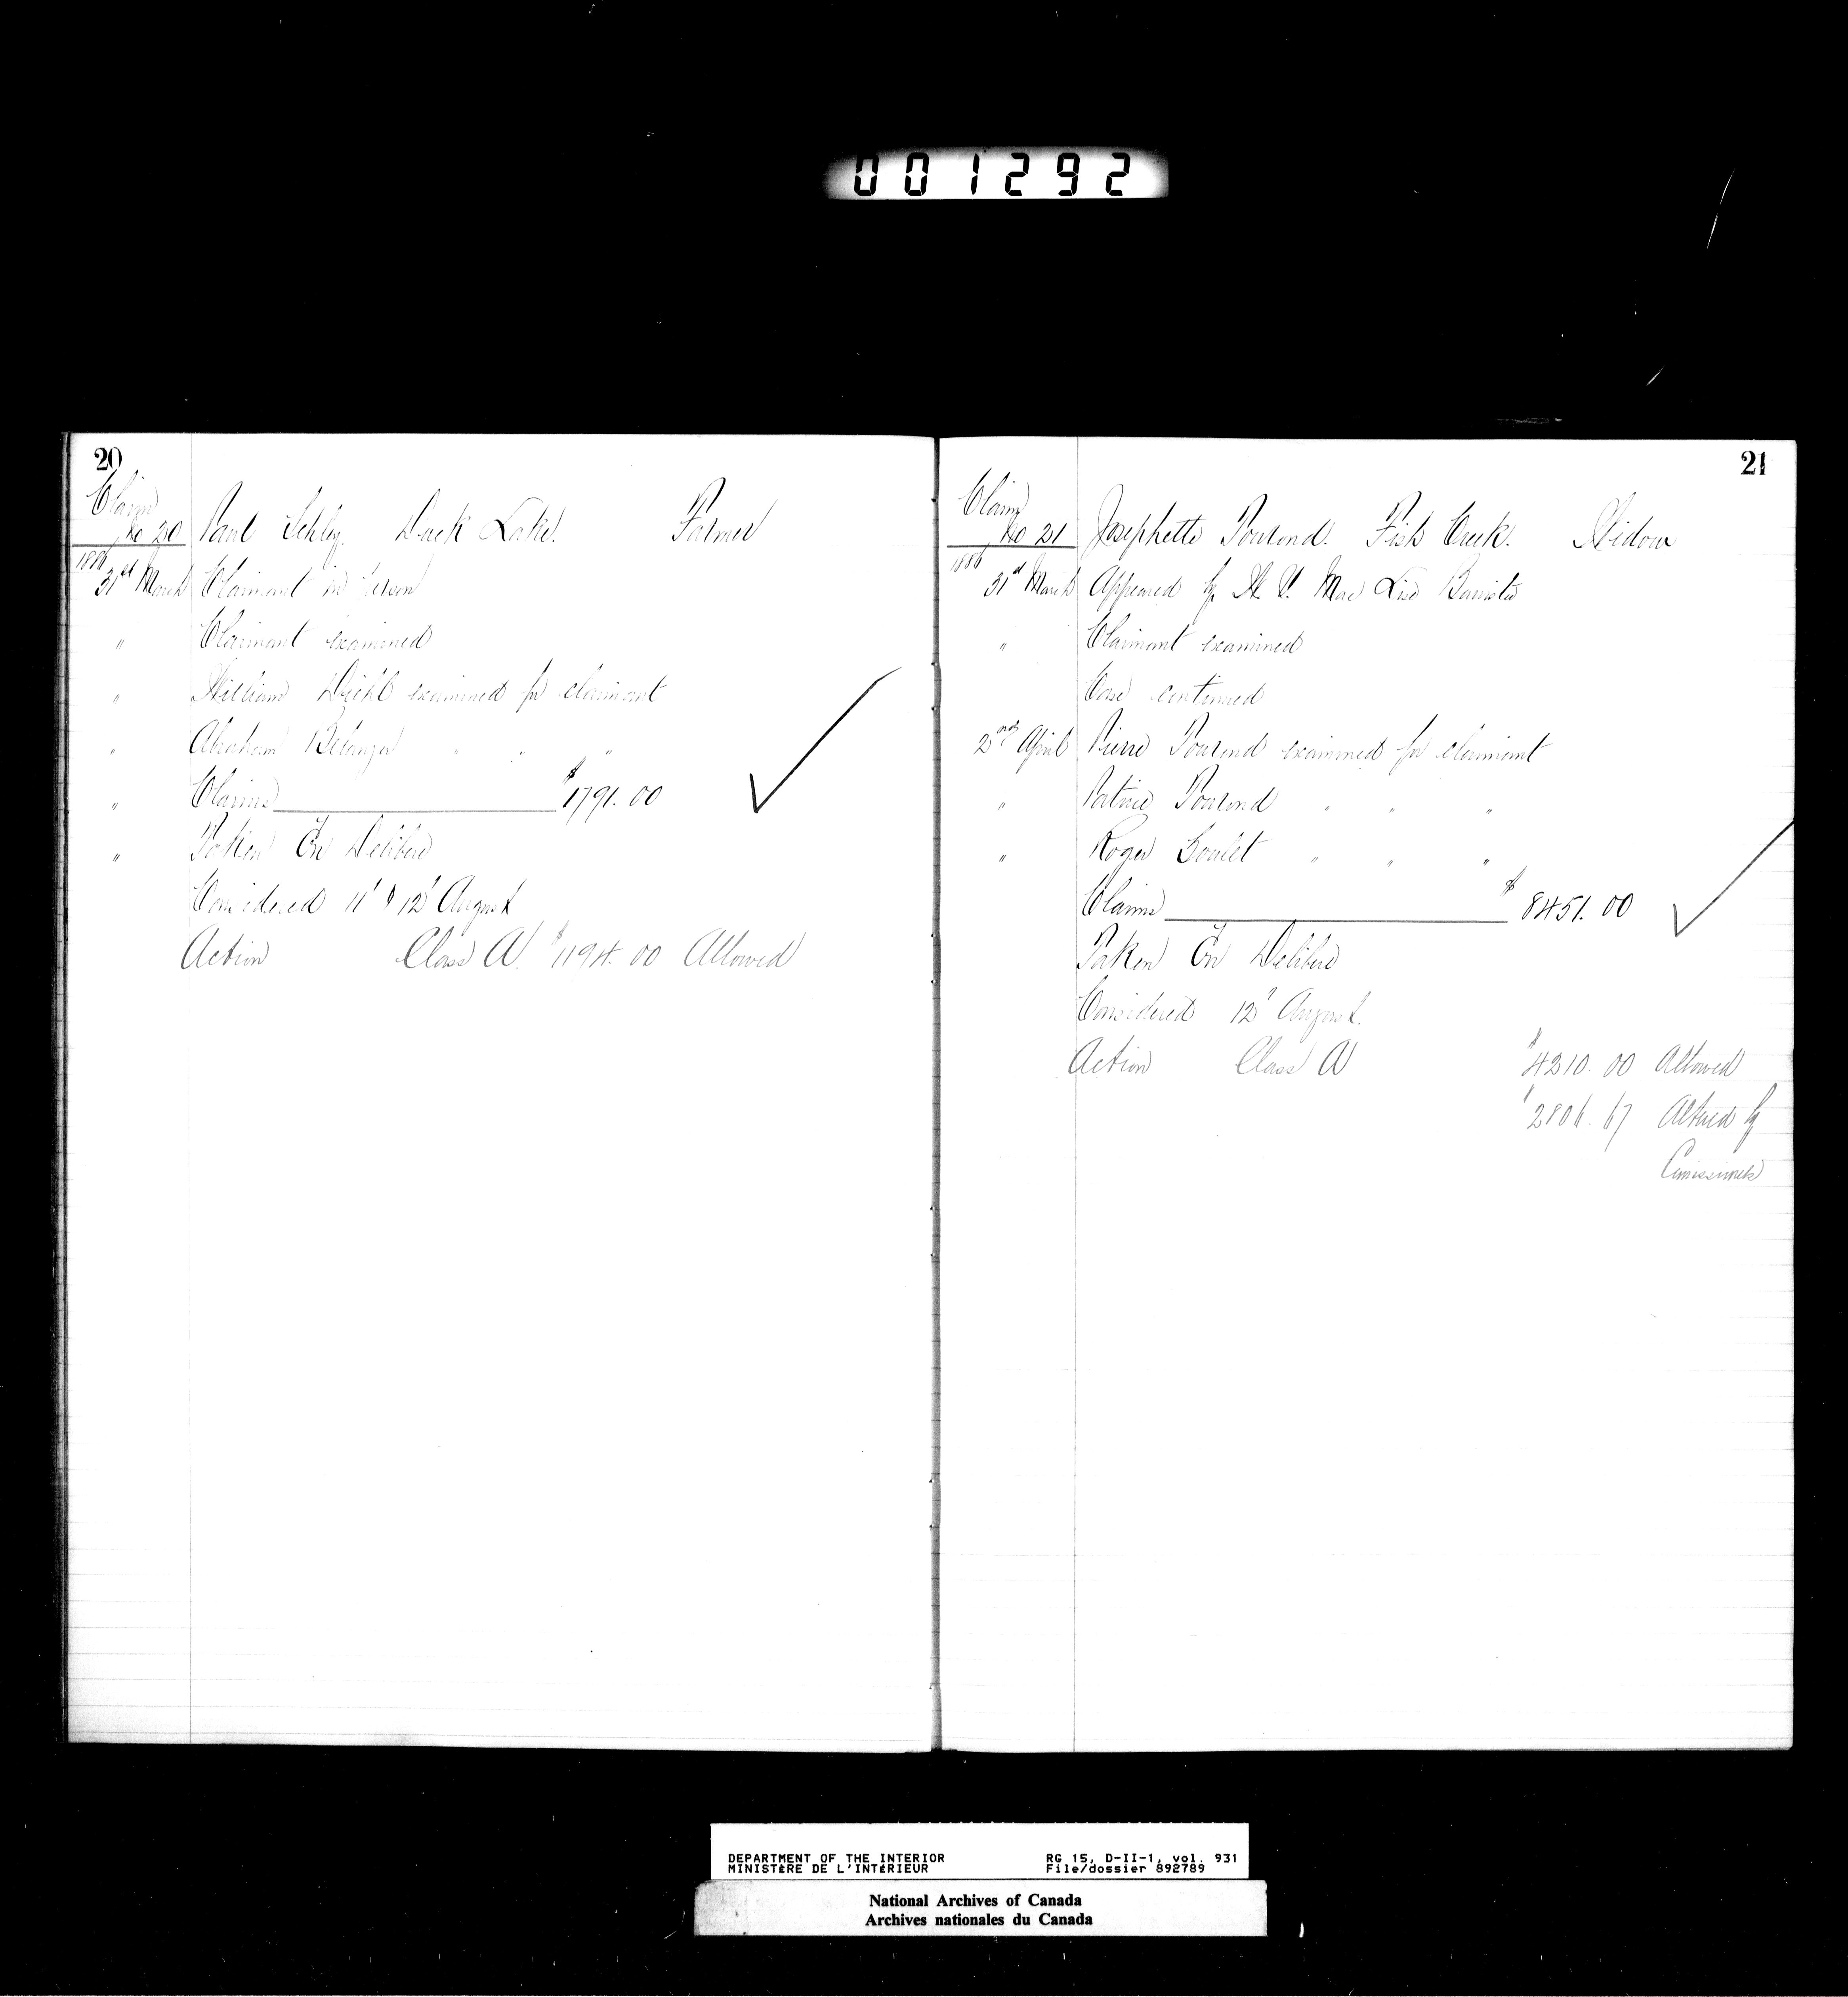 001292
20
Claim
No 20 Paul Schley. Duck Lake. Farmer
1886
31st March Claimant in Person
" Claimant examined
" William Diehl examined for claimant
" Abraham Belanger " " "
" Claims $1791.00
" Taken En Delibere
Considered 11' & 12' August
Action Class A. $1194.00 Allowed
21
Claim
No 21 Josephette Tourond. Fish Creek. Widow
1886
31st March Appeared by Mac Lise Barrister
" Claimant examined
Case continued
2nd April Pierre Tourond examined for claimant
" Patrice Tourond " " "
" Roger Goulet " " "
Claims $8451.00
Taken En Delibere
Considered 12' August.
Action Class A $4210.00 Allowed
$2806.67 Altered by
Comissioners
DEPARTMENT OF THE INTERIOR RG 15, D-II-1, vol. 931
MINISTÈRE DE L'INTÉRIEUR File/dossier 892789
National Archives of Canada
Archives nationales du Canada